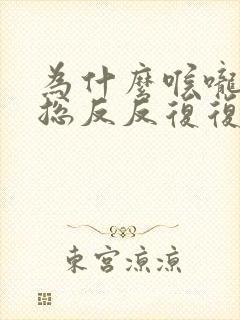 為什麼喉嚨
總反反復復
東宮涼涼